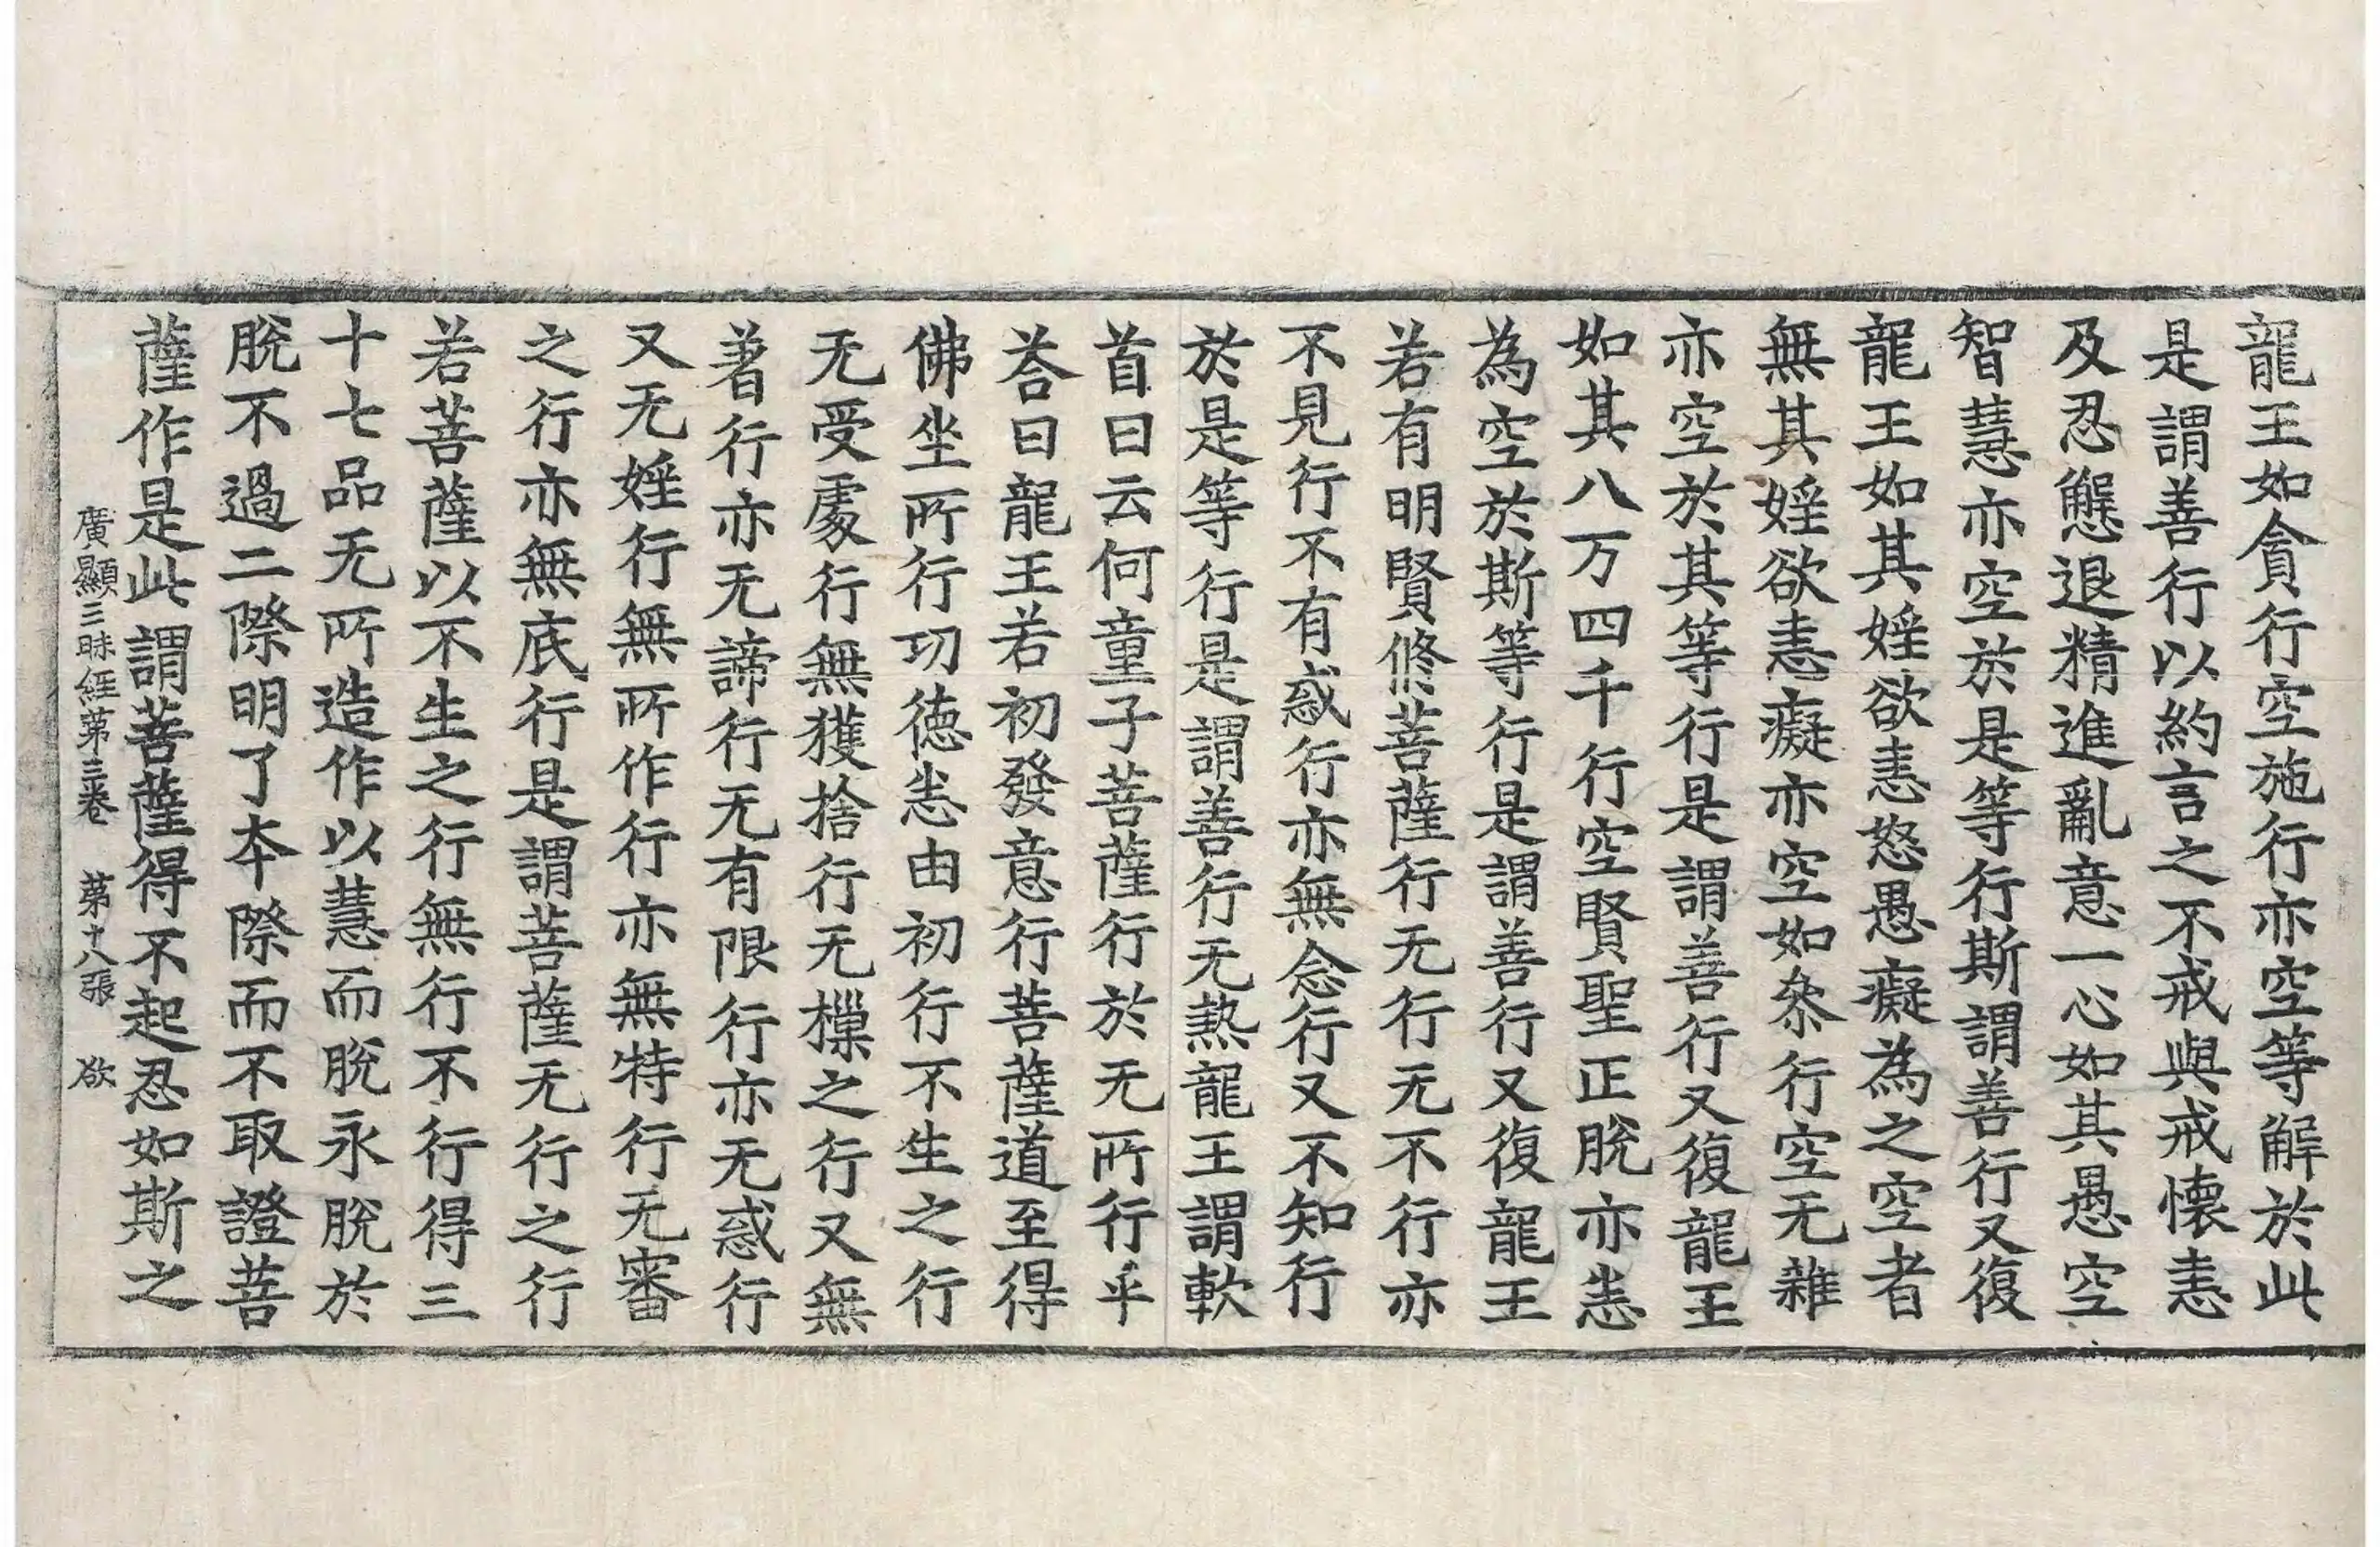 龍王如貪行空施行亦空等解於此
是謂善行以約言之不戒與戒懷恚
及忍懈退精進亂意一心如其愚空
智慧亦空於是等行斯謂善行又復
龍王如其婬欲恚怒愚癡為之空者
無其婬欲恚癡亦空如叅行空无雜
亦空於其等行是謂善行又復龍王
如其八万四千行空賢聖正脫亦恚
為空於斯等行是謂善行又復龍王
若有明賢修菩薩行无行无不行亦
不見行不有惑行亦無念行又不知行
於是等行是謂善行无熱龍王謂軟
首曰云何童子菩薩行於无所行乎
荅曰龍王若初發意行菩薩道至得
佛坐所行功德恚由初行不生之行
无受處行無獲捨行无樔之行又無
著行亦无諦行无有限行亦无惑行
又无婬行無所作行亦無特行无審
之行亦無底行是謂菩薩无行之行
若菩薩以不生之行無行不行得三
十七品无所造作以慧而脫永脫於
脫不過二際明了本際而不取證菩
薩作是此謂菩薩得不起忍如斯之
廣顯三昧經第三卷 第十八張 欲